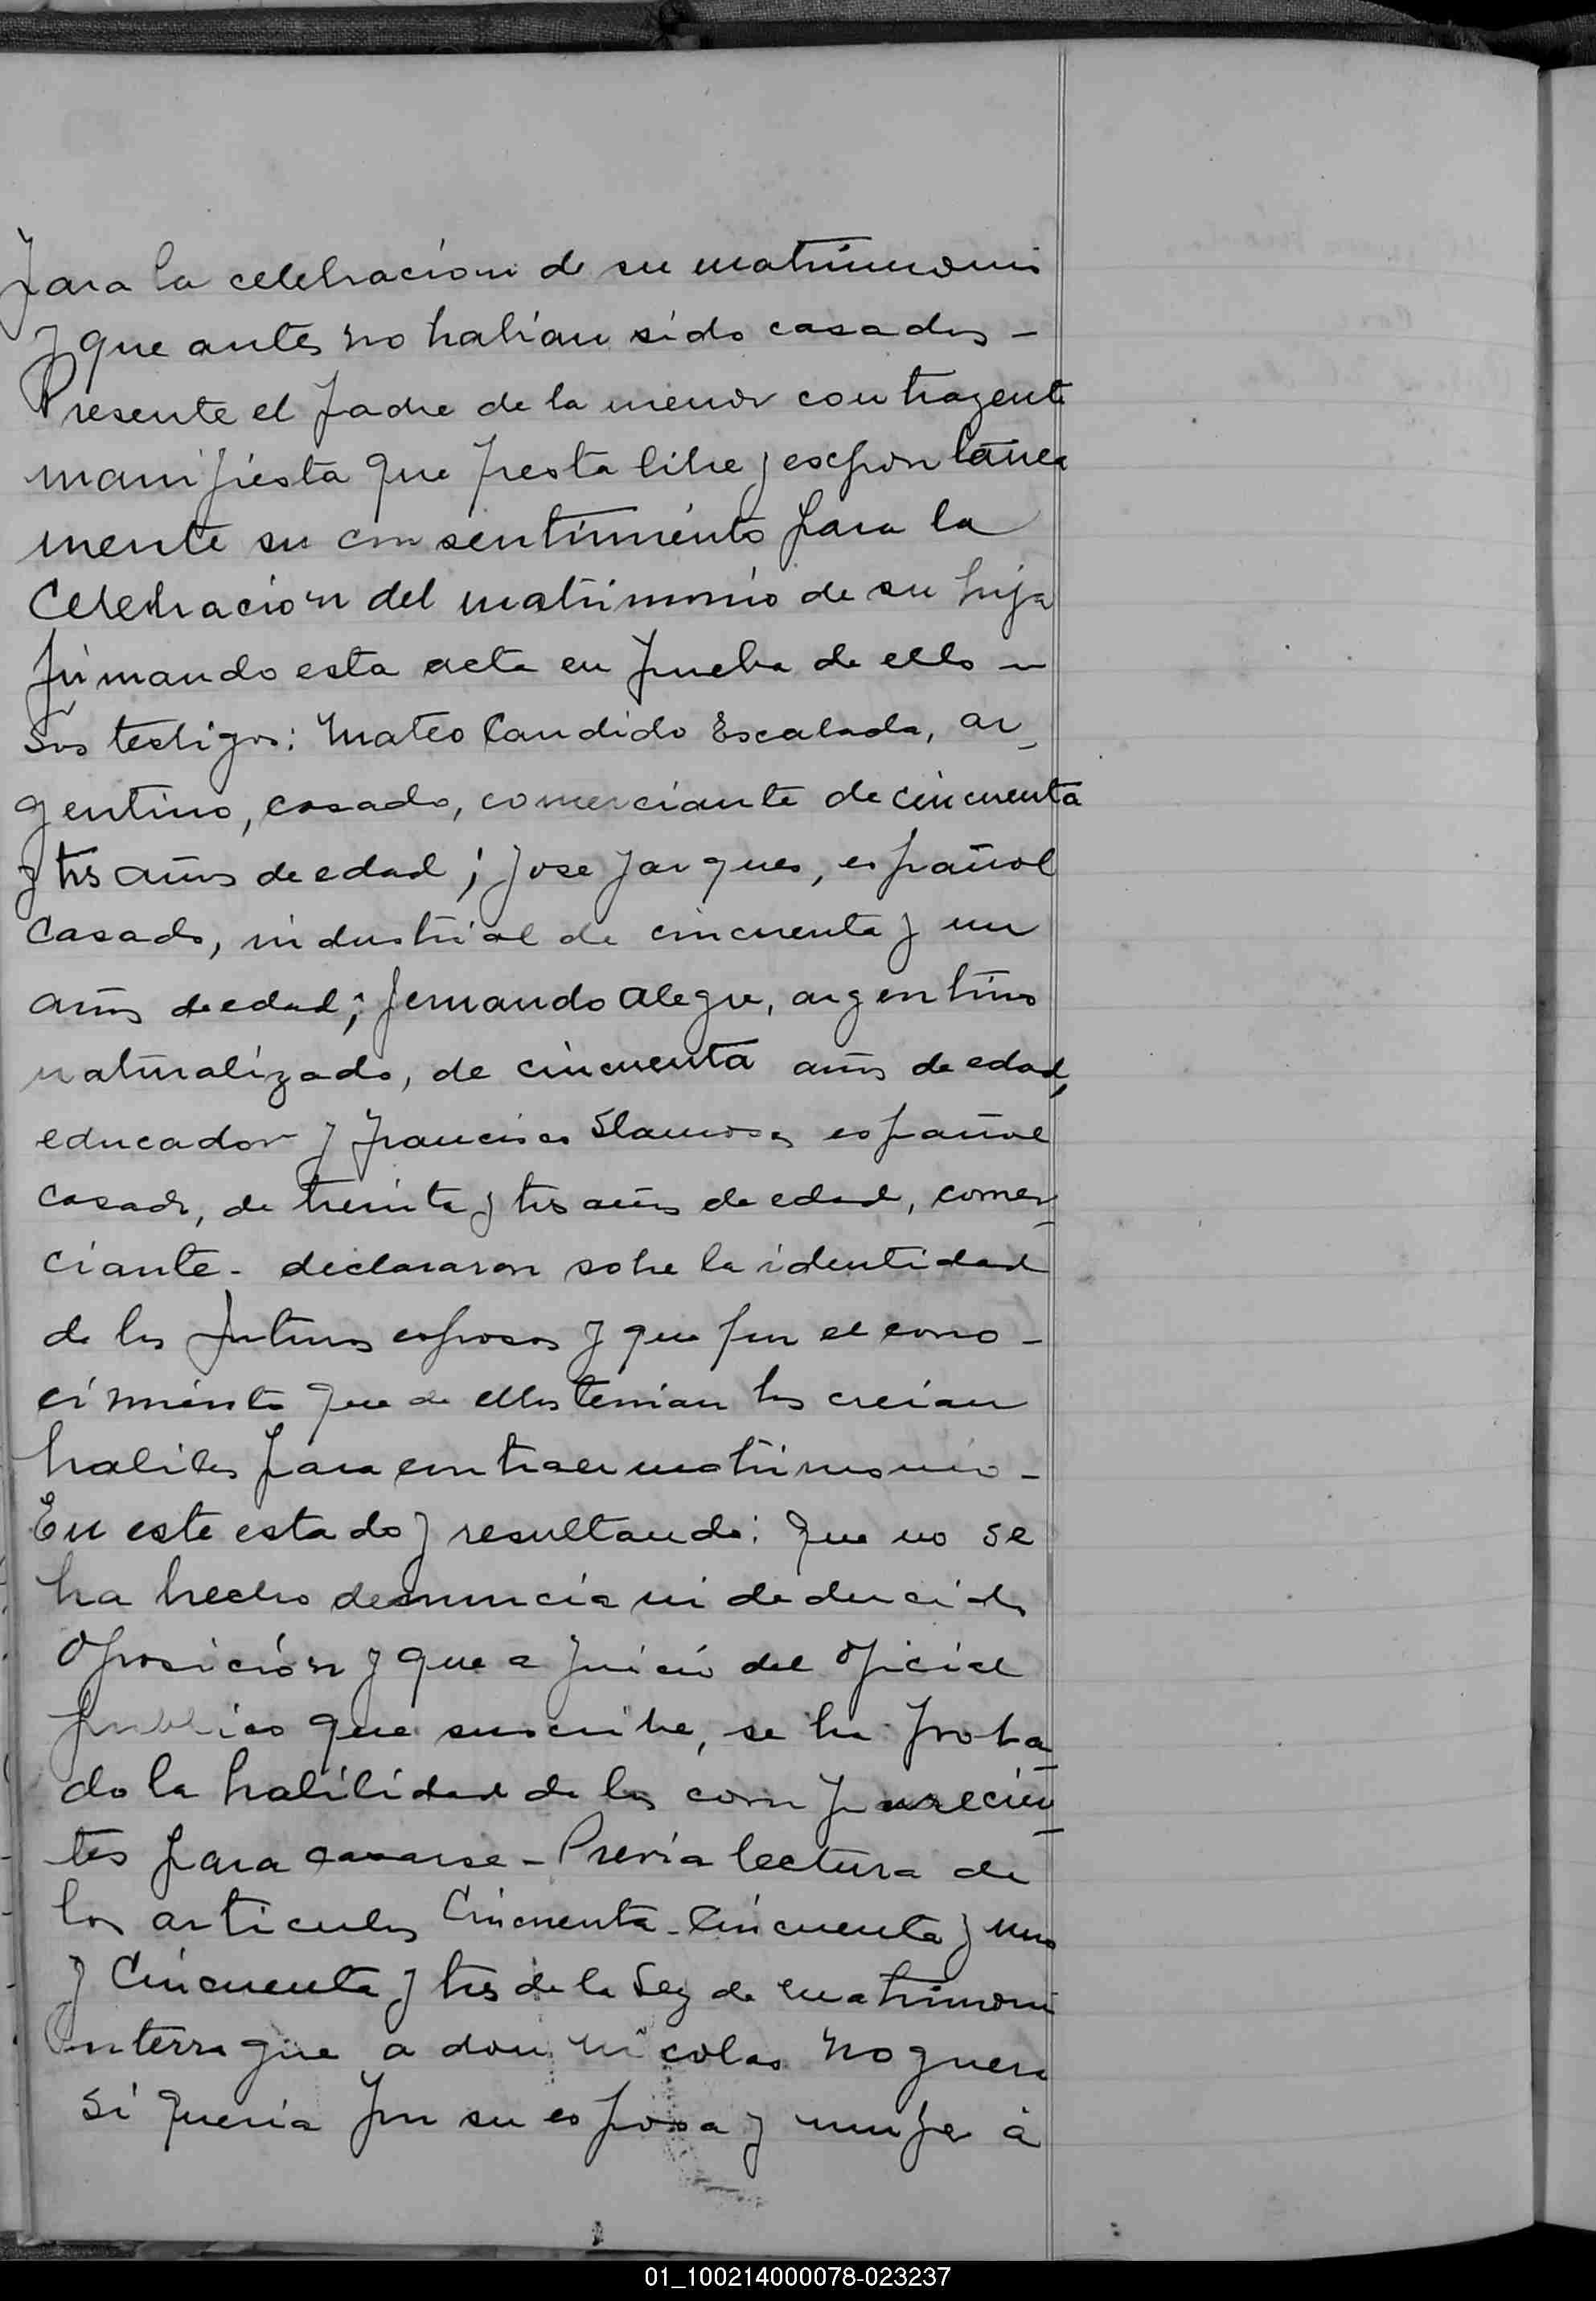 para la celebracion de su matrimonio
y que antes no habian sido casados -
Presente el padre de la menor contrayente
manifiesta que presta libre y espontanea
mente su consentimiento para la
Celebracion del matrimonio de su hija
firmando esta acta en prueba de ello -
Los testigos: Mateo Candido Escalada, ar_
gentino, casado, comerciante de cincuenta
y tres años de edad; Jose Jarques, español
Casado, industrial de cincuenta y un
años de edad; Fernando Alegre, argentino
naturalizado, de cincuenta años de edad,
educador y Francisco Llamosas español
casado, de treinta y tres años de edad, comer_
ciante - declararon sobre la identidad
de los futuros esposos y que por el cono -
cimiento que de ellos tenian los creian
habiles para contraer matrimonio -
En este estado y resultando: que no se
ha hecho denuncia ni deducido
oposición y que a juicio del oficial
publico que suscribe, se ha proba_
do la habilidad de los comparecien_
tes para casarse - Previa lectura de
los articulos Cincuenta - Cincuenta y uno
y Cincuenta y tres de la Ley de matrimonio
Interrogue a don Nicolas Noguera
si queria por su esposa y mujer á
01_100214000078-023237